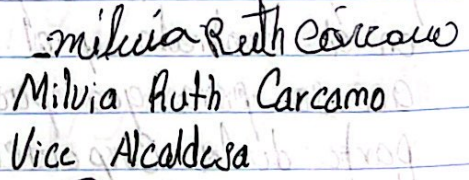 Milvia Ruth Carcamo
Milvia Ruth Carcamo
Vice Alcaldesa